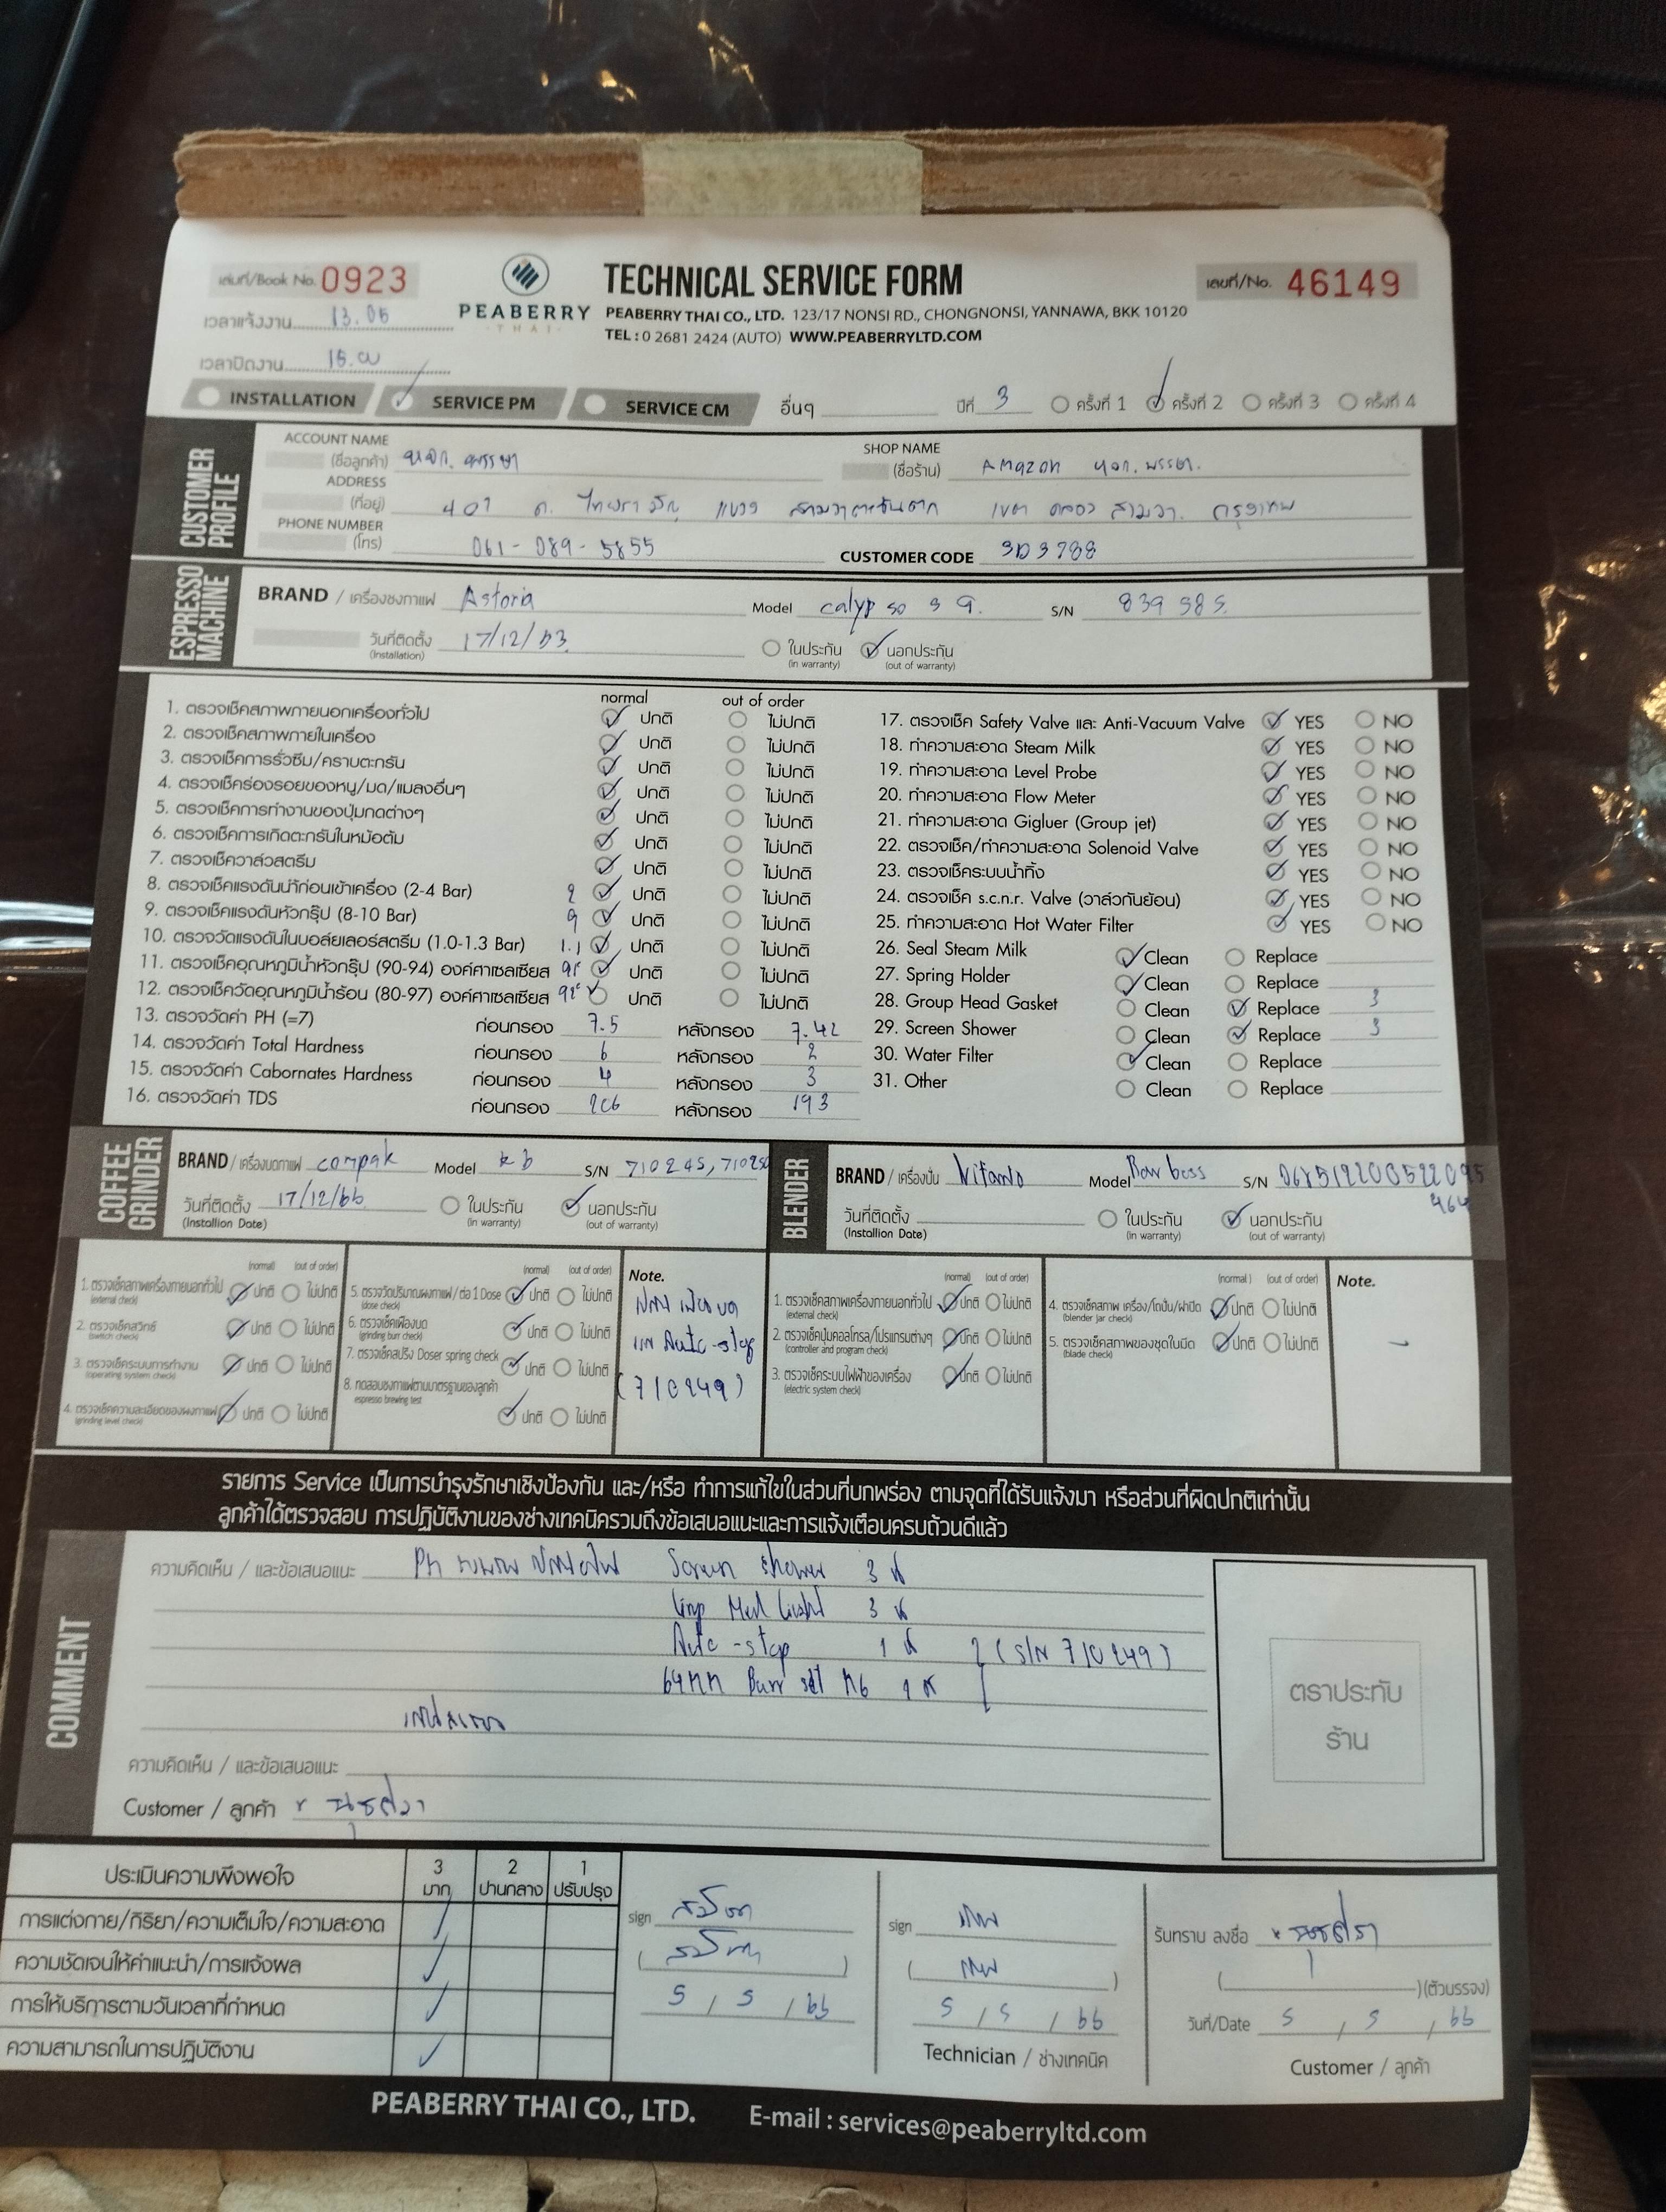 เล่มที่/Book No. 0923
PEABERRY
THAI
TECHNICAL SERVICE FORM
เลขที่/No. 46149
เวลาแจ้งงาน 13.05
PEABERRY THAI CO., LTD. 123/17 NONSI RD., CHONGNONSI, YANNAWA, BKK 10120
TEL : 0 2681 2424 (AUTO) WWW.PEABERRYLTD.COM
เวลาปิดงาน 15.00
INSTALLATION SERVICE PM SERVICE CM อื่นๆ ปีที่ 3 ครั้งที่ 1 ครั้งที่ 2 ครั้งที่ 3 ครั้งที่ 4
CUSTOMER PROFILE
ACCOUNT NAME
(ชื่อลูกค้า) หจก. พรรษา
SHOP NAME
(ชื่อร้าน) Amazon หจก. พรรษา.
ADDRESS
(ที่อยู่) 407 ถ. ไทยรามัญ แขวง สามวาตะวันตก เขต คลองสามวา. กรุงเทพ
PHONE NUMBER
(โทร) 061-089-5855
CUSTOMER CODE 3D3788
ESPRESSO MACHINE
BRAND / เครื่องชงกาแฟ Astoria Model calypso 3 G. S/N 839585
วันที่ติดตั้ง 17/12/63
(Installation)
ในประกัน นอกประกัน
(in warranty) (out of warranty)
normal out of order
1. ตรวจเช็คสภาพภายนอกเครื่องทั่วไป ปกติ ไม่ปกติ
2. ตรวจเช็คสภาพภายในเครื่อง ปกติ ไม่ปกติ
3. ตรวจเช็คการรั่วซึม/คราบตะกรัน ปกติ ไม่ปกติ
4. ตรวจเช็คร่องรอยของหนู/มด/แมลงอื่นๆ ปกติ ไม่ปกติ
5. ตรวจเช็คการทำงานของปุ่มกดต่างๆ ปกติ ไม่ปกติ
6. ตรวจเช็คการเกิดตะกรันในหม้อต้ม ปกติ ไม่ปกติ
7. ตรวจเช็ควาล์วสตรีม ปกติ ไม่ปกติ
8. ตรวจเช็คแรงดันน้ำก่อนเข้าเครื่อง (2-4 Bar) 2 ปกติ ไม่ปกติ
9. ตรวจเช็คแรงดันหัวกรุ๊ป (8-10 Bar) 9 ปกติ ไม่ปกติ
10. ตรวจวัดแรงดันในบอล์ยเลอร์สตรีม (1.0-1.3 Bar) 1.1 ปกติ ไม่ปกติ
11. ตรวจเช็คอุณหภูมิน้ำหัวกรุ๊ป (90-94) องศ์ศาเซลเซียส ปกติ ไม่ปกติ
12. ตรวจเช็ควัดอุณหภูมิน้ำร้อน (80-97) องศ์ศาเซลเซียส ปกติ ไม่ปกติ
13. ตรวจวัดค่า PH (=7) ก่อนกรอง 7.5 หลังกรอง 7.42
14. ตรวจวัดค่า Total Hardness ก่อนกรอง 6 หลังกรอง 2
15. ตรวจวัดค่า Cabornates Hardness ก่อนกรอง 4 หลังกรอง 3
16. ตรวจวัดค่า TDS ก่อนกรอง 206 หลังกรอง 193
17. ตรวจเช็ค Safety Valve และ Anti-Vacuum Valve YES NO
18. ทำความสะอาด Steam Milk YES NO
19. ทำความสะอาด Level Probe YES NO
20. ทำความสะอาด Flow Meter YES NO
21. ทำความสะอาด Gigluer (Group jet) YES NO
22. ตรวจเช็ค/ทำความสะอาด Solenoid Valve YES NO
23. ตรวจเช็คระบบน้ำทิ้ง YES NO
24. ตรวจเช็ค s.c.n.r. Valve (วาล์วกันย้อน) YES NO
25. ทำความสะอาด Hot Water Filter YES NO
26. Seal Steam Milk Clean Replace
27. Spring Holder Clean Replace
28. Group Head Gasket Clean Replace 3
29. Screen Shower Clean Replace 3
30. Water Filter Clean Replace
31. Other Clean Replace
COFFEE GRINDER
BRAND / เครื่องบดกาแฟ compak Model k6 S/N 710245,
วันที่ติดตั้ง 17/12/66
(Installion Date)
ในประกัน นอกประกัน
(in warranty) (out of warranty)
BLENDER
BRAND / เครื่องปั่น Model S/N
วันที่ติดตั้ง
(Installion Date)
ในประกัน นอกประกัน
(in warranty) (out of warranty)
(normal) (out of order)
1. ตรวจเช็คสภาพเครื่องภายนอกทั่วไป ปกติ ไม่ปกติ
(external check)
2. ตรวจเช็คสวิทซ์ ปกติ ไม่ปกติ
(switch check)
3. ตรวจเช็คระบบการทำงาน ปกติ ไม่ปกติ
(operating system check)
4. ตรวจเช็คความละเอียดของผงกาแฟ ปกติ ไม่ปกติ
(grinding level check)
(normal) (out of order)
5. ตรวจวัดปริมาณผงกาแฟ / ต่อ 1 Dose ปกติ ไม่ปกติ
(dose check)
6. ตรวจเช็คเฟืองบด ปกติ ไม่ปกติ
(grinding burr check)
7. ตรวจเช็คสปริง Doser spring check ปกติ ไม่ปกติ
8. ทดสอบชงกาแฟตามมาตรฐานของลูกค้า
espresso brewing test ปกติ ไม่ปกติ
Note.
เฟืองบด
Auto-stop
(710249)
(normal) (out of order)
1. ตรวจเช็คสภาพเครื่องภายนอกทั่วไป ปกติ ไม่ปกติ
(external check)
2. ตรวจเช็คปุ่มคอลโทรล/โปรแกรมต่างๆ ปกติ ไม่ปกติ
(controller and program check)
3. ตรวจเช็คระบบไฟฟ้าของเครื่อง ปกติ ไม่ปกติ
(electric system check)
(normal) (out of order)
4. ตรวจเช็คสภาพ เครื่อง/โถปั่น/ฝาปิด ปกติ ไม่ปกติ
(blender jar check)
5. ตรวจเช็คสภาพของชุดใบมีด ปกติ ไม่ปกติ
(blade check)
Note.
รายการ Service เป็นการบำรุงรักษาเชิงป้องกัน และ/หรือ ทำการแก้ไขในส่วนที่บกพร่อง ตามจุดที่ได้รับแจ้งมา หรือส่วนที่ผิดปกติเท่านั้น
ลูกค้าได้ตรวจสอบ การปฏิบัติงานของช่างเทคนิครวมถึงข้อเสนอแนะและการแจ้งเตือนครบถ้วนดีแล้ว
COMMENT
ความคิดเห็น / และข้อเสนอแนะ Screen shower 3
3
Auto-stop 1 (S/N 710249)
64mm Burr set K6 1
ความคิดเห็น / และข้อเสนอแนะ
Customer / ลูกค้า
ตราประทับ
ร้าน
ประเมินความพึงพอใจ 3 มาก 2 ปานกลาง 1 ปรับปรุง
การแต่งกาย/กิริยา/ความเต็มใจ/ความสะอาด
ความชัดเจนให้คำแนะนำ/การแจ้งผล
การให้บริการตามวันเวลาที่กำหนด
ความสามารถในการปฏิบัติงาน
sign
5 / 5 / 66
sign
5 / 5 / 66
Technician / ช่างเทคนิค
รับทราบ ลงชื่อ
(ตัวบรรจง)
วันที่/Date 5 / 5 / 66
Customer / ลูกค้า
PEABERRY THAI CO., LTD. E-mail : services@peaberryltd.com